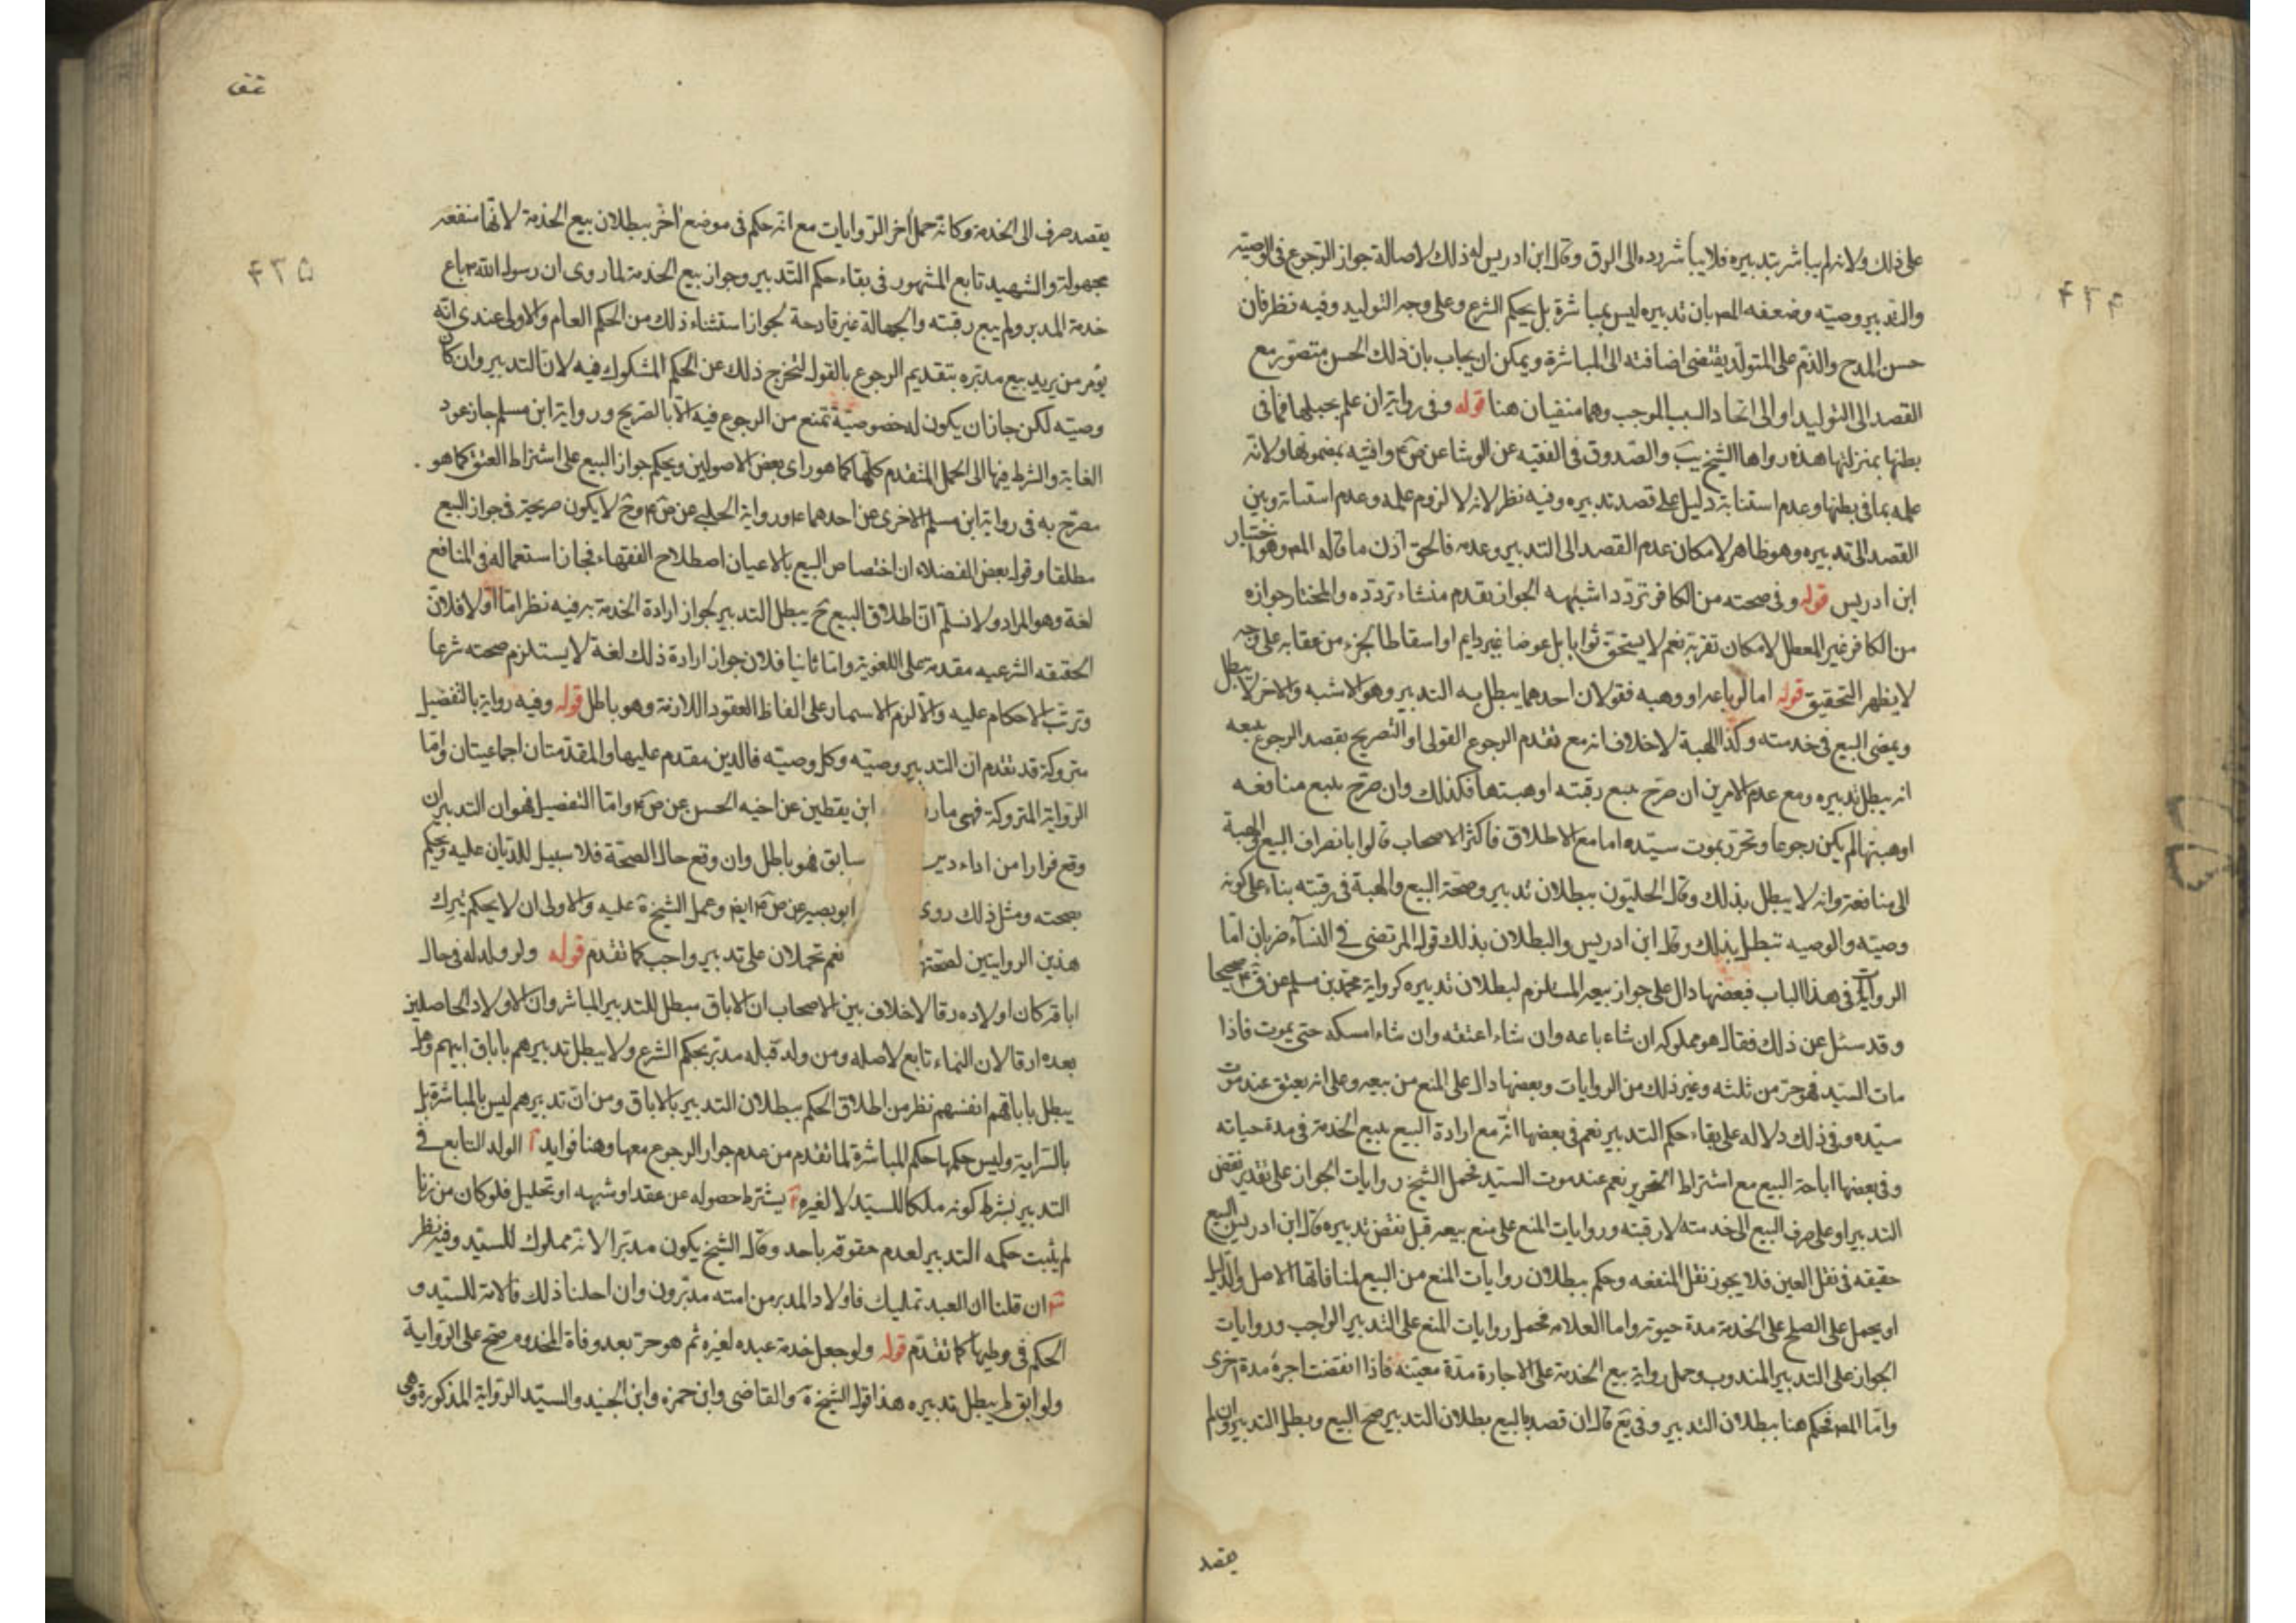 ٤٣٤
على ذلك ولانه لم يباشر بتدبيره فلا يباشر رده الى الرق وقال ابن ادريس له ذلك لاصالة جواز الرجوع فى الوصية
والتدبير وصيته وضعفه المص بان تدبيره ليس بمباشرة بل بحكم الشرع وعلى وجه التوليد وفيه نظر فان
حسن المدح والذم على المتولد يقتضى اضافته الى المباشرة ويمكن ان يجاب بان ذلك الحسن متصور مع
القصد الى التوليد او الى اتحاد السبب الموجب وهما منفيان هنا قوله وفى رواية ان علم بحبلها فما فى
بطنها بمنزلتها هذه رواها الشيخ يب والصدوق فى الفقيه عن الوشا عن بمضمونها ولانه
علمه بما فى بطنها وعدم استثنائه دليل على قصد تدبيره وفيه نظر لانه لا لزوم علمه وعدم استثنائه وبين
القصد الى تدبيره وهو ظاهر لامكان عدم القصد الى التدبير وعدمه فالحق اذن ما قاله المص وهو اختيار
ابن ادريس قوله وفى صحته من الكافر تردد اشبهه الجواز تقدم منشاء تردده والمختار جوازه
من الكافر غير المعطل لامكان تقربه نعم لا يستحق ثوابا بل عوضا غير دايم او اسقاطا لجزء من عقابه على وجه
لا يظهر التحقيق قوله اما لو باعه او وهبه فقولان احدهما يبطل به التدبير وهو الاشبه والاخر لا يبطل
ويمضى البيع فى خدمته وكذا الهبة لا خلاف انه مع تقدم الرجوع القولى او التصريح بقصد الرجوع ببيعه
انه يبطل تدبيره ومع عدم الامرين ان صرح ببيع رقبته او هبتها فكذلك وان صرح ببيع منافعه
او هبتها لم يكن رجوعا وتحرر بموت سيده اما مع الاطلاق فاكثر الاصحاب قالوا بانصراف البيع والهبة
الى منافعه وانه لا يبطل بذلك وقال الحليون ببطلان تدبير وصحة البيع والهبة فى رقبته بناء على كونه
وصيته والوصيه تبطل بذلك وقال ابن ادريس والبطلان بذلك قول المرتضى فى النساء ضربان اما
الروايات فى هذا الباب فبعضها دال على جواز بيعه المستلزم لبطلان تدبيره كرواية محمد بن مسلم عن صحيحا
وقد سئل عن ذلك فقال هو مملوكه ان شاء باعه وان شاء اعتقه وان شاء امسكه حتى يموت فاذا
مات السيد فهو حر من ثلثه وغير ذلك من الروايات وبعضها دال على المنع من بيعه وعلى انه يعتق عند موت
سيده وفى ذلك دلاله على بقاء حكم التدبير نعم فى بعضها انه مع ارادة البيع يبيع الخدمة فى مدة حياته
وفى بعضها اباحة البيع مع اشتراط التحرير نعم عند موت السيد فحمل الشيخ روايات الجواز على تقدير نقض
التدبير او على صرف البيع الى خدمته لا رقبته وروايات المنع على منع بيعه قبل نقض تدبيره قال ابن ادريس البيع
حقيقه فى نقل العين فلا يجوز نقل المنفعه وحكم ببطلان روايات المنع من البيع لمنافاتها الاصل والدليل
او يحمل على الصلح على الخدمة مدة حيوته واما العلامه فحمل روايات المنع على التدبير الواجب وروايات
الجواز على التدبير المندوب وحمل رواية بيع الخدمة على الاجارة مدة معينه فاذا انقضت اجره مدة اخرى
واما المص فحكم هنا ببطلان التدبير وفى يع قال ان قصد بالبيع بطلان التدبير صح البيع وبطل التدبير وان لم
يقصد
٤٣٥
يقصد صرف الى الخدمة وكانه حمل اخر الروايات مع انه حكم فى موضع اخر ببطلان بيع الخدمة لانها منفعه
مجهولة والشهيد تابع المشهور فى بقاء حكم التدبير وجواز بيع الخدمة لما روى ان رسول الله باع
خدمة المدبر ولم يبع رقبته والجهالة غير قادحة لجواز استثناء ذلك من الحكم العام والاولى عندى انه
يؤمر من يريد بيع مدبره بتقديم الرجوع بالقول لتخرج ذلك عن الحكم المشكوك فيه لان التدبير وان كان
وصيته لكن جاز ان يكون له خصوصية تمنع من الرجوع فيه الا بالصريح ورواية ابن مسلم جاز عود
الغاية والشرط فيها الى الحمل المتقدم كلها كما هو راى بعض الاصولين ويحكم جواز البيع على اشتراط العتق كما هو
مصرح به فى رواية ابن مسلم الاخرى عن احدهما ورواية الحلبى عن وح لا يكون صريحة فى جواز البيع
مطلقا وقول بعض الفضلاء ان اختصاص البيع بالاعيان اصطلاح الفقهاء فجاز استعماله فى المنافع
لغة وهو المراد ولا نسلم ان اطلاق البيع ح يبطل التدبير لجواز ارادة الخدمة به فيه نظر اما اولا فلان
الحقيقه الشرعيه مقدمة على اللغوية واما ثانيا فلان جواز ارادة ذلك لغة لا يستلزم صحته شرعا
وترتب الاحكام عليه والا لزم الاسمار على الفاظ العقود اللازمة وهو باطل قوله وفيه رواية بالتفصيل
متروكة قد تقدم ان التدبير وصيته وكل وصيته فالدين مقدم عليها والمقدمتان اجماعيتان واما
الرواية المتروكة فهى ابن يقطين عن اخيه الحسن عن واما التفصيل فهو ان التدبير ان
وقع فرارا من اداء دين سابق فهو باطل وان وقع حال الصحة فلا سبيل للديان عليه ويحكم
بصحته ومثل ذلك روى ابو بصير عن ايض وعمل الشيخ عليه والاولى ان لا يحكم بترك
هذين الروايتين لصحتها نعم تحملان على تدبير واجب كما تقدم قوله ولو ولد له فى حال
اباقه كان اولاده رقا لا خلاف بين الاصحاب ان الاباق مبطل للتدبير المباشر وان الاولاد الحاصلين
بعده ارقا لان النماء تابع لاصله ومن ولد قبله مدبر بحكم الشرع ولا يبطل تدبيرهم باباق ابيهم وهل
يبطل باباقهم انفسهم نظر من اطلاق الحكم ببطلان التدبير بالاباق ومن ان تدبيرهم ليس بالمباشرة بل
بالسراية وليس حكمها حكم المباشرة لما تقدم من عدم جواز الرجوع معها وهنا فوايد آ الولد التابع فى
التدبير بشرط كونه ملكا للسيد لا لغيره يشترط حصوله عن عقد او شبهه او تحليل فلو كان من زنا
لم يثبت حكمه التدبير لعدم حقوقه باحد وقال الشيخ يكون مدبرا لانه مملوك للسيد وفيه نظر
ان قلنا ان العبد تمليك فاولاد المدبر من امته مدبرون وان احلنا ذلك فالامة للسيد و
الحكم فى وطيها كما تقدم قوله ولو جعل خدمة عبده لغيره ثم هو حر بعد وفاة المخدوم صح على الرواية
ولو ابق لم يبطل تدبيره هذا قول الشيخ والقاضى وابن حمزه وابن الجنيد والسيد الرواية المذكورة وهى